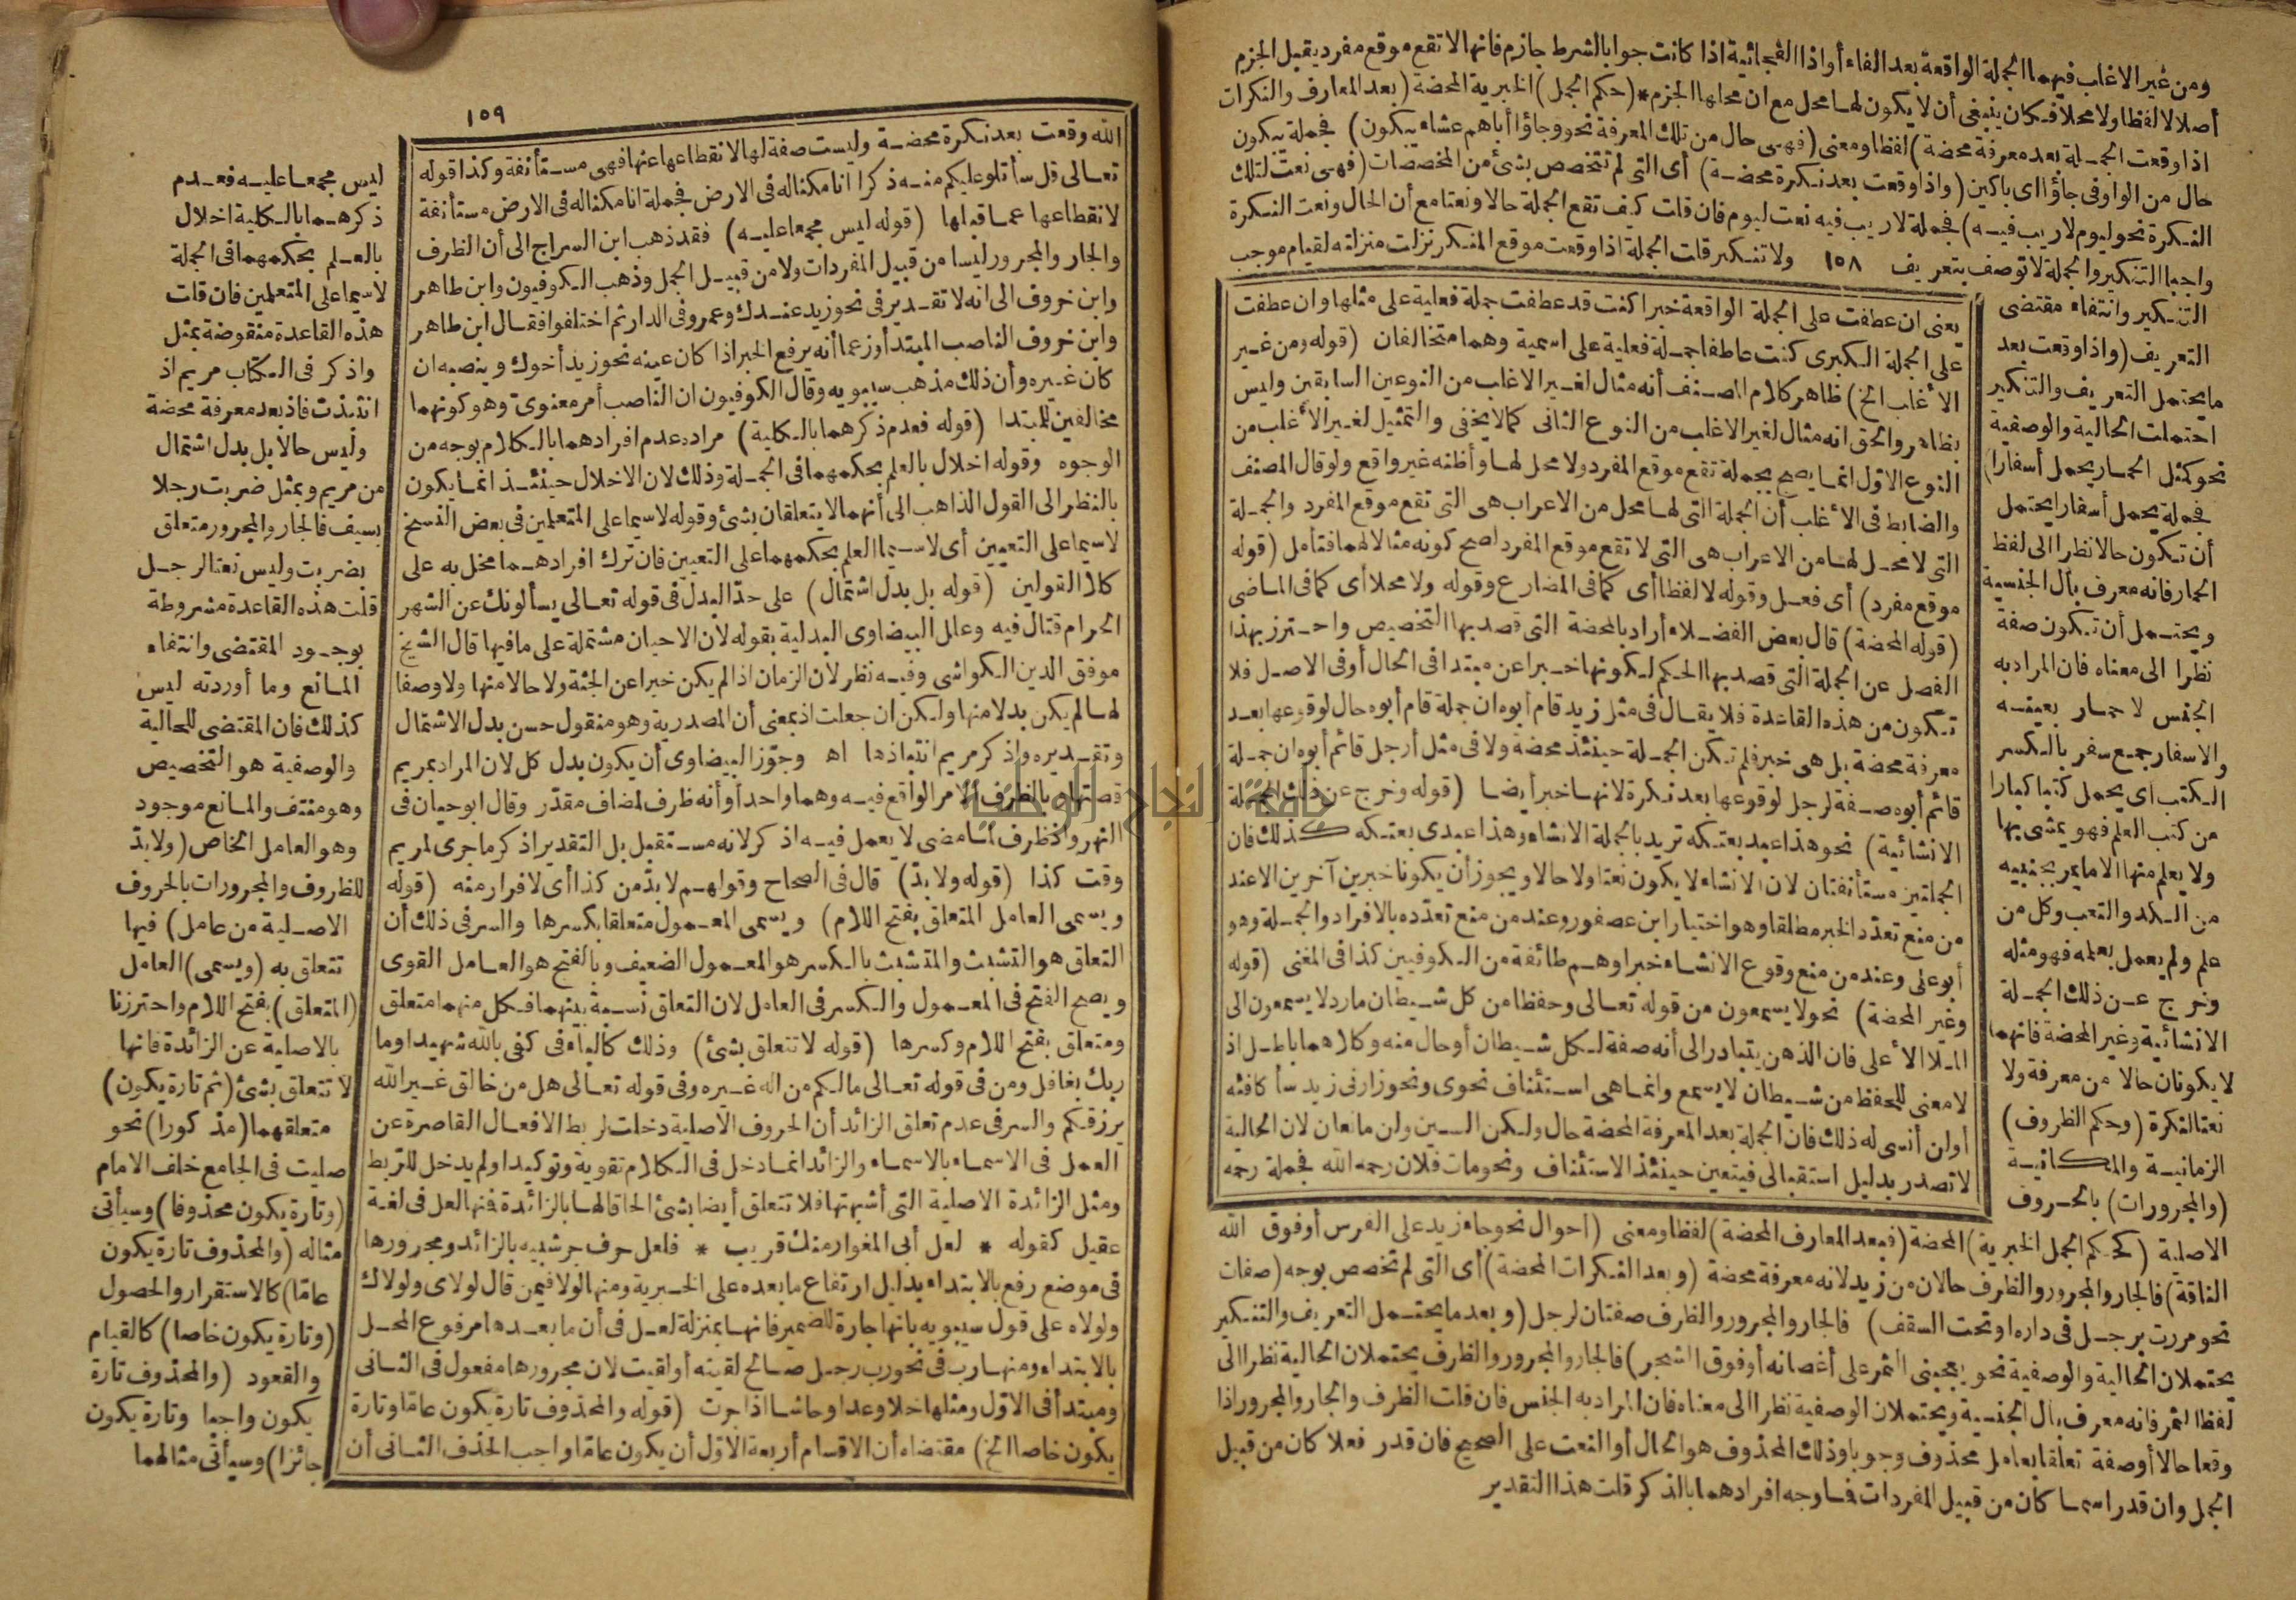 ومن غير الاغلب فيهما الجملة الواقعة بعد الفاء أو اذا الفجائية اذا كانت جوابا لشرط جازم فانها لا تقع موقع مفرد يقبل الجزم
أصلا لا لفظا ولا محلا فكان ينبغى أن لا يكون لها محل مع ان محلها الجزم * (حكم الجمل) الخبرية المحضة (بعد المعارف والنكرات
اذا وقعت الجملة بعد معرفة محضة) لفظا ومعنى (فهى حال من تلك المعرفة نحو وجاؤا أباهم عشاء يبكون) فجملة يبكون
حال من الواو فى جاؤا اى باكين (واذا وقعت بعد نكرة محضة) أى التى لم تتخصص بشئ من المخصصات (فهى نعت لتلك
النكرة نحو ليوم لا ريب فيه) فجملة لا ريب فيه نعت ليوم فان قلت كيف تقع الجملة حالا ونعتا مع أن الحال ونعت النكرة
واجبا التنكير والجملة لا توصف بتعريف ١٥٨ ولا تنكير قلت الجملة اذا وقعت موقع المنكر نزلت منزلته لقيام موجب
التنكير وانتفاء مقتضى
التعريف (واذا وقعت بعد
ما يحتمل التعريف والتنكير
احتملت الحالية والوصفية
نحو كمثل الحمار يحمل أسفارا)
فجملة يحمل أسفارا يحتمل
أن تكون حالا نظرا الى لفظ
الحمار فانه معرف بأل الجنسية
ويحتمل أن تكون صفة
نظرا الى معناه فان المراد به
الجنس لا حمار بعينه
والاسفار جمع سفر بالكسر
الكتب اى يحمل كتبا كبارا
من كتب العلم فهو يمشى بها
ولا يعلم منها الا ما يمر بجنبيه
من الكد والتعب وكل من
علم ولم يعمل بعلمه فهو مثله
وخرج عن ذلك الجملة
الانشائية وغير المحضة فانهما
لا يكونان حالا من معرفة ولا
نعتا لنكرة (وحكم الظروف)
الزمانية والمكانية
(والمجرورات) بالحروف
يعنى ان عطفت على الجملة الواقعة خبرا كنت قد عطفت جملة فعلية على مثلها وان عطفت
على الجملة الكبرى كنت عاطفا جملة فعلية على اسمية وهما متخالفان (قوله ومن غير
الأغلب الخ) ظاهر كلام المصنف أنه مثال لغير الاغلب من النوعين السابقين وليس
بظاهر والحق انه مثال لغير الاغلب من النوع الثانى كما لا يخفى والتمثيل لغير الأغلب من
النوع الاول انما يصح بجملة تقع موقع المفرد ولا محل لها وأظنه غير واقع ولو قال المصنف
والضابط فى الأغلب أن الجملة التى لها محل من الاعراب هى التى تقع موقع المفرد والجملة
التى لا محل لها من الاعراب هى التى لا تقع موقع المفرد لصح كونه مثالا لهما فتأمل (قوله
موقع مفرد) أى فعل وقوله لا لفظا أى كما فى المضارع وقوله ولا محلا أى كما فى الماضى
(قوله المحضة) قال بعض الفضلاء أراد بالمحضة التى قصد بها التخصيص واحترز بهذا
الفصل عن الجملة التى قصد بها الحكم لكونها خبرا عن مبتدا فى الحال أو فى الاصل فلا
تكون من هذه القاعدة فلا يقال فى مثل زيد قام أبوه ان جملة قام أبوه حال لوقوعها بعد
معرفة محضة بل هى خبر فلم تكن الجملة حينئذ محضة ولا فى مثل أرجل قائم أبوه ان جملة
قائم أبوه صفة لرجل لوقوعها بعد نكرة لانها خبر أيضا (قوله وخرج عن ذلك الجملة
الانشائية) نحو هذا عبد بعتكه تريد بالجملة الانشاء وهذا عبدى بعتكه كذلك فان
الجملتين مستأنفتان لان الانشاء لا يكون نعتا ولا حالا ويجوز أن يكونا خبرين آخرين الا عند
من منع تعدد الخبر مطلقا وهو اختيار ابن عصفور وعند من منع تعدده بالافراد والجملة وهو
أبو على وعند من منع وقوع الانشاء خبرا وهم طائفة من الكوفيين كذا فى المغنى (قوله
وغير المحضة) نحو لا يسمعون من قوله تعالى وحفظا من كل شيطان مارد لا يسمعون الى
الملا الأعلى فان الذهن يتبادر الى أنه صفة لكل شيطان أو حال منه وكلاهما باطل اذ
لا معنى للحفظ من شيطان لا يسمع وانما هى استئناف نحوى ونحو زارنى زيد سأكافئه
أو لن أنسى له ذلك فان الجملة بعد المعرفة المحضة حال ولكن السين ولن مانعان لان الحالية
لا تصدر بدليل استقبالى فيتعين حينئذ الاستئناف ونحو مات فلان رحمه الله فجملة رحمه
الاصلية (كحكم الجمل الخبرية) المحضة (فبعد المعارف المحضة) لفظا ومعنى (احوال نحو جاء زيد على الفرس أو فوق الله
الناقة) فالجار والمجرور والظرف حالان من زيد لانه معرفة محضة (وبعد النكرات المحضة) أى التى لم تخصص بوجه (صفات
نحو مررت برجل فى داره او تحت السقف) فالجار والمجرور والظرف صفتان لرجل (وبعد ما يحتمل التعريف والتنكير
يحتملان الحالية والوصفية نحو يعجبنى الثمر على أغصانه أو فوق الشجر) فالجار والمجرور والظرف يحتملان الحالية نظرا الى
لفظ الثمر فانه معرف بال الجنسية ويحتملان الوصفية نظرا الى معناه فان المراد به الجنس فان قلت الظرف والجار والمجرور اذا
وقعا حالا أو صفة تعلقا بعامل محذوف وجوبا وذلك المحذوف هو الحال أو النعت على الصحيح فان قدر فعلا كان من قبيل
الجمل وان قدر اسما كان من قبيل المفردات فما وجه افرادهما بالذكر قلت هذا التقدير
١٥٩
الله وقعت بعد نكرة محضة وليست صفة لها لانقطاعها عنها فهى مستأنفة وكذا قوله
تعالى قل سأتلو عليكم منه ذكرا انا مكنا له فى الارض فجملة انا مكنا له فى الارض مستأنفة
لانقطاعها عما قبلها (قوله ليس مجمعا عليه) فقد ذهب ابن السراج الى أن الظرف
والجار والمجرور ليسا من قبيل المفردات ولا من قبيل الجمل وذهب الكوفيون وابن طاهر
وابن خروف الى انه لا تقدير فى نحو زيد عندك وعمرو فى الدار ثم اختلفوا فقال ابن طاهر
وابن خروف الناصب المبتدأ وزعما أنه يرفع الخبر اذا كان عينه نحو زيد أخوك وينصبه ان
كان غيره وأن ذلك مذهب سيبويه وقال الكوفيون ان الناصب أمر معنوى وهو كونهما
مخالفين للمبتدا (قوله فعدم ذكرهما بالكلية) مراده عدم افرادهما بالكلام بوجه من
الوجوه وقوله اخلال بالعلم بحكمهما فى الجملة وذلك لان الاخلال حينئذ انما يكون
بالنظر الى القول الذاهب الى أنهما لا يتعلقان بشئ وقوله لا سيما على المتعلمين فى بعض النسخ
لا سيما على التعيين أى لا سيما العلم بحكمهما على التعيين فان ترك افرادهما مخل به على
كلا القولين (قوله بل بدل اشتمال) على حد البدل فى قوله تعالى يسألونك عن الشهر
الحرام قتال فيه وعلل البيضاوى البدلية بقوله لان الاحيان مشتملة على ما فيها قال الشيخ
موفق الدين الكواشى وفيه نظر لان الزمان اذا لم يكن خبرا عن الجثة ولا حالا منها ولا وصفا
لها لم يكن بدلا منها ولكن ان جعلت اذ بمعنى أن المصدرية وهو منقول حسن بدل الاشتمال
وتقديره واذكر مريم انتباذها اه وجوز البيضاوى أن يكون بدل كل لان المراد بمريم
قصتها وبالظرف الامر الواقع فيه وهما واحد أو أنه ظرف لمضاف مقدر وقال ابو حيان فى
النهر واذ ظرف لما مضى لا يعمل فيه اذكر لانه مستقبل بل التقدير اذكر ما جرى لمريم
وقت كذا (قوله ولا بد) قال فى الصحاح وقولهم لا بد من كذا أى لا فرار منه (قوله
ويسمى العامل المتعلق بفتح اللام) ويسمى المعمول متعلقا بكسرها والسر فى ذلك أن
التعلق هو التشبث والمتشبث بالكسر هو المعمول الضعيف وبالفتح هو العامل القوى
ويصح الفتح فى المعمول والكسر فى العامل لان التعلق نسبة بينهما فكل منهما متعلق
ومتعلق بفتح اللام وكسرها (قوله لا تتعلق بشئ) وذلك كالباء فى كفى بالله شهيدا وما
ربك بغافل ومن فى قوله تعالى مالكم من اله غيره وفى قوله تعالى هل من خالق غير الله
يرزقكم والسر فى عدم تعلق الزائد أن الحروف الاصلية دخلت لربط الافعال القاصرة عن
العمل فى الاسماء بالاسماء والزائد انما دخل فى الكلام تقوية وتوكيدا ولم يدخل للربط
ومثل الزائدة الاصلية التى أشبهتها فلا تتعلق أيضا بشئ الحاقا لها بالزائدة فمنها لعل فى لغة
عقيل كقوله * لعل أبى المغوار منك قريب * فلعل حرف جر شبيه بالزائد ومجرورها
فى موضع رفع بالابتداء بدليل ارتفاع ما بعده على الخبرية ومنها لولا فيمن قال لولاى ولولاك
ولولاه على قول سيبويه بانها جارة للضمير فانها بمنزلة لعل فى أن ما بعدها مرفوع المحل
بالابتداء ومنها رب فى نحو رب رجل صالح لقيته أو لقيت لان مجرورها مفعول فى الثانى
ومبتدأ فى الاول ومثلها خلا وعدا وحاشا اذا جرت (قوله والمحذوف تارة يكون عاما وتارة
يكون خاصا الخ) مقتضاه أن الاقسام أربعة الاول أن يكون عاما واجب الحذف الثانى أن
ليس مجمعا عليه فعدم
ذكرهما بالكلية اخلال
بالعلم بحكمهما فى الجملة
لا سيما على المتعلمين فان قلت
هذه القاعدة منقوضة بمثل
واذكر فى الكتاب مريم اذ
انتبذت فاذ بعد معرفة محضة
وليس حالا بل بدل اشتمال
من مريم وبمثل ضربت رجلا
بسيف فالجار والمجرور متعلق
بضربت وليس نعتا لرجل
قلت هذه القاعدة مشروطة
بوجود المقتضى وانتفاء
المانع وما أوردته ليس
كذلك فان المقتضى للحالية
والوصفية هو التخصيص
وهو منتف والمانع موجود
وهو العامل الخاص (ولا بد
للظروف والمجرورات بالحروف
الاصلية من عامل) فيها
تتعلق به (ويسمى) العامل
(المتعلق) بفتح اللام واحترزنا
بالاصلية عن الزائدة فانها
لا تتعلق بشئ (ثم تارة يكون)
متعلقهما (مذكورا) نحو
صليت فى الجامع خلف الامام
(وتارة يكون محذوفا) وسيأتى
مثاله (والمحذوف تارة يكون
عاما) كالاستقرار والحصول
(وتارة يكون خاصا) كالقيام
والقعود (والمحذوف تارة
يكون واجبا وتارة يكون
جائزا) وسيأتى مثالهما
جامعة النجاح الوطنية